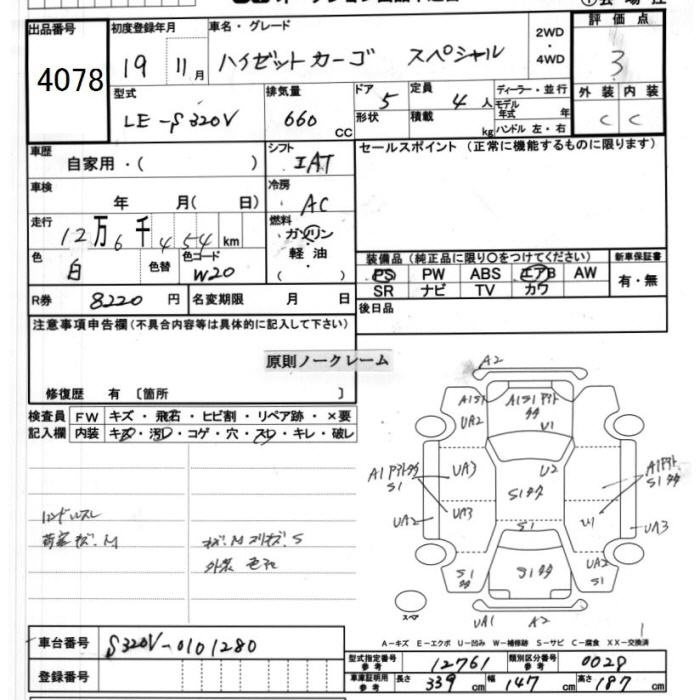 出品番号
4078
初度登録年月
19 11月
車名・グレード
ハイゼットカーゴ スペシャル
2WD
・
4WD
評価点
3
外装 内装
C C
型式
LE-S320V
排気量
660 CC
ドア 5
形状
定員 4人
積載 kg
ディーラー・並行
モデル年式 年
ハンドル 左・右
車歴
自家用・( )
シフト
IAT
セールスポイント(正常に機能するものに限ります)
車検
年 月( 日)
冷房
AC
走行
12万6千454km
燃料
ガソリン
・
軽油
( )
色
白
色替
色コード
W20
装備品(純正品に限り〇をつけてください)
PS PW ABS エアB AW
SR ナビ TV カワ
新車保証書
有・無
R券 8220円
名変期限 月 日
後日品
注意事項申告欄(不具合内容等は具体的に記入して下さい)
原則ノークレーム
修復歴 有 〔箇所 〕
検査員
記入欄
FW キズ・飛石・ヒビ割・リペア跡・×要
内装 キズ・汚レ・コゲ・穴・スレ・キレ・破レ
ハンドルスレ
荷室キズ.M
キズ.M スリキズ.S
A2
A1S1
UA2
U1
UA3
U2
S1タタ
UA2
UA3
U1
UA3
S1
UA2
S1
S1タタ
S1タタ
スペア
UA1
A2
A-キズ E-エクボ U-凹み W-補修跡 S-サビ C-腐食 XX-交換済
車台番号 S320V-0101280
登録番号
型式指定番号
参考
12761
類別区分番号
参考
0028
車庫証明用
参考
長さ 339cm 幅 147cm 高さ 187cm